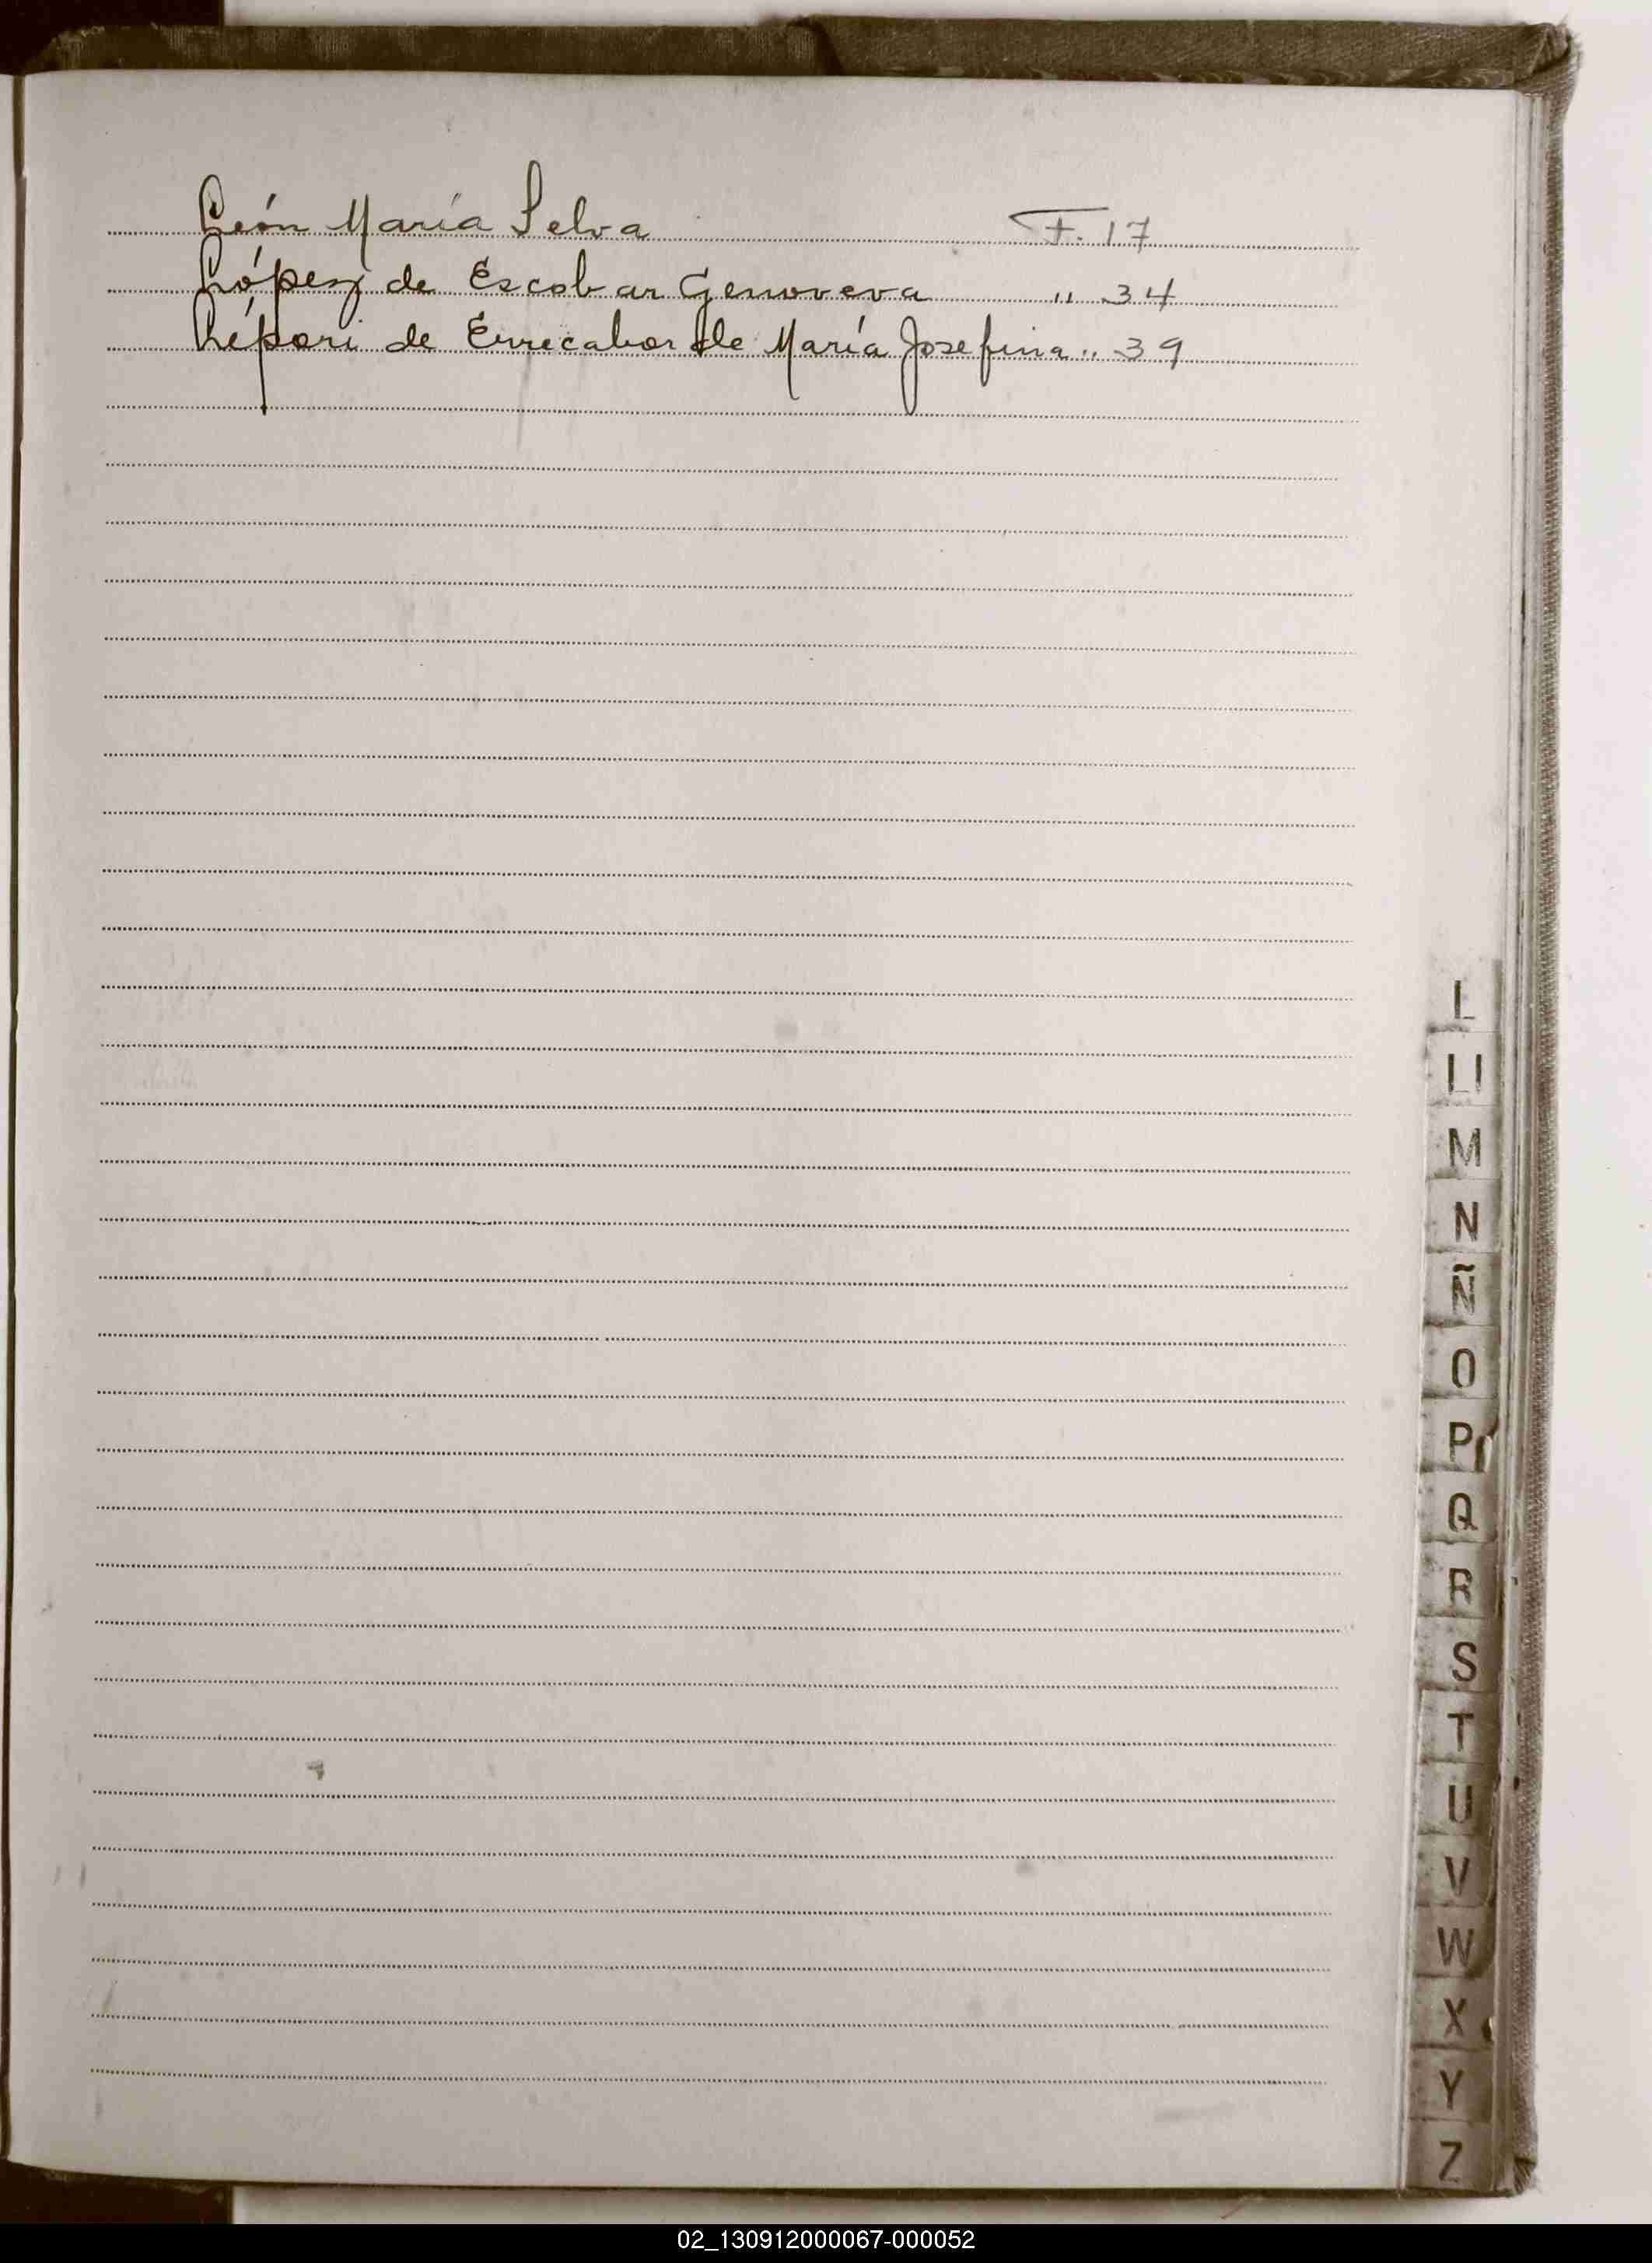 León María Selva F. 17
López de Escobar Genoveva " 34
Lépori de Errecaborde María Josefina " 39
L
Ll
M
N
Ñ
O
P
Q
R
S
T
U
V
W
X
Y
Z
02_130912000067-000052